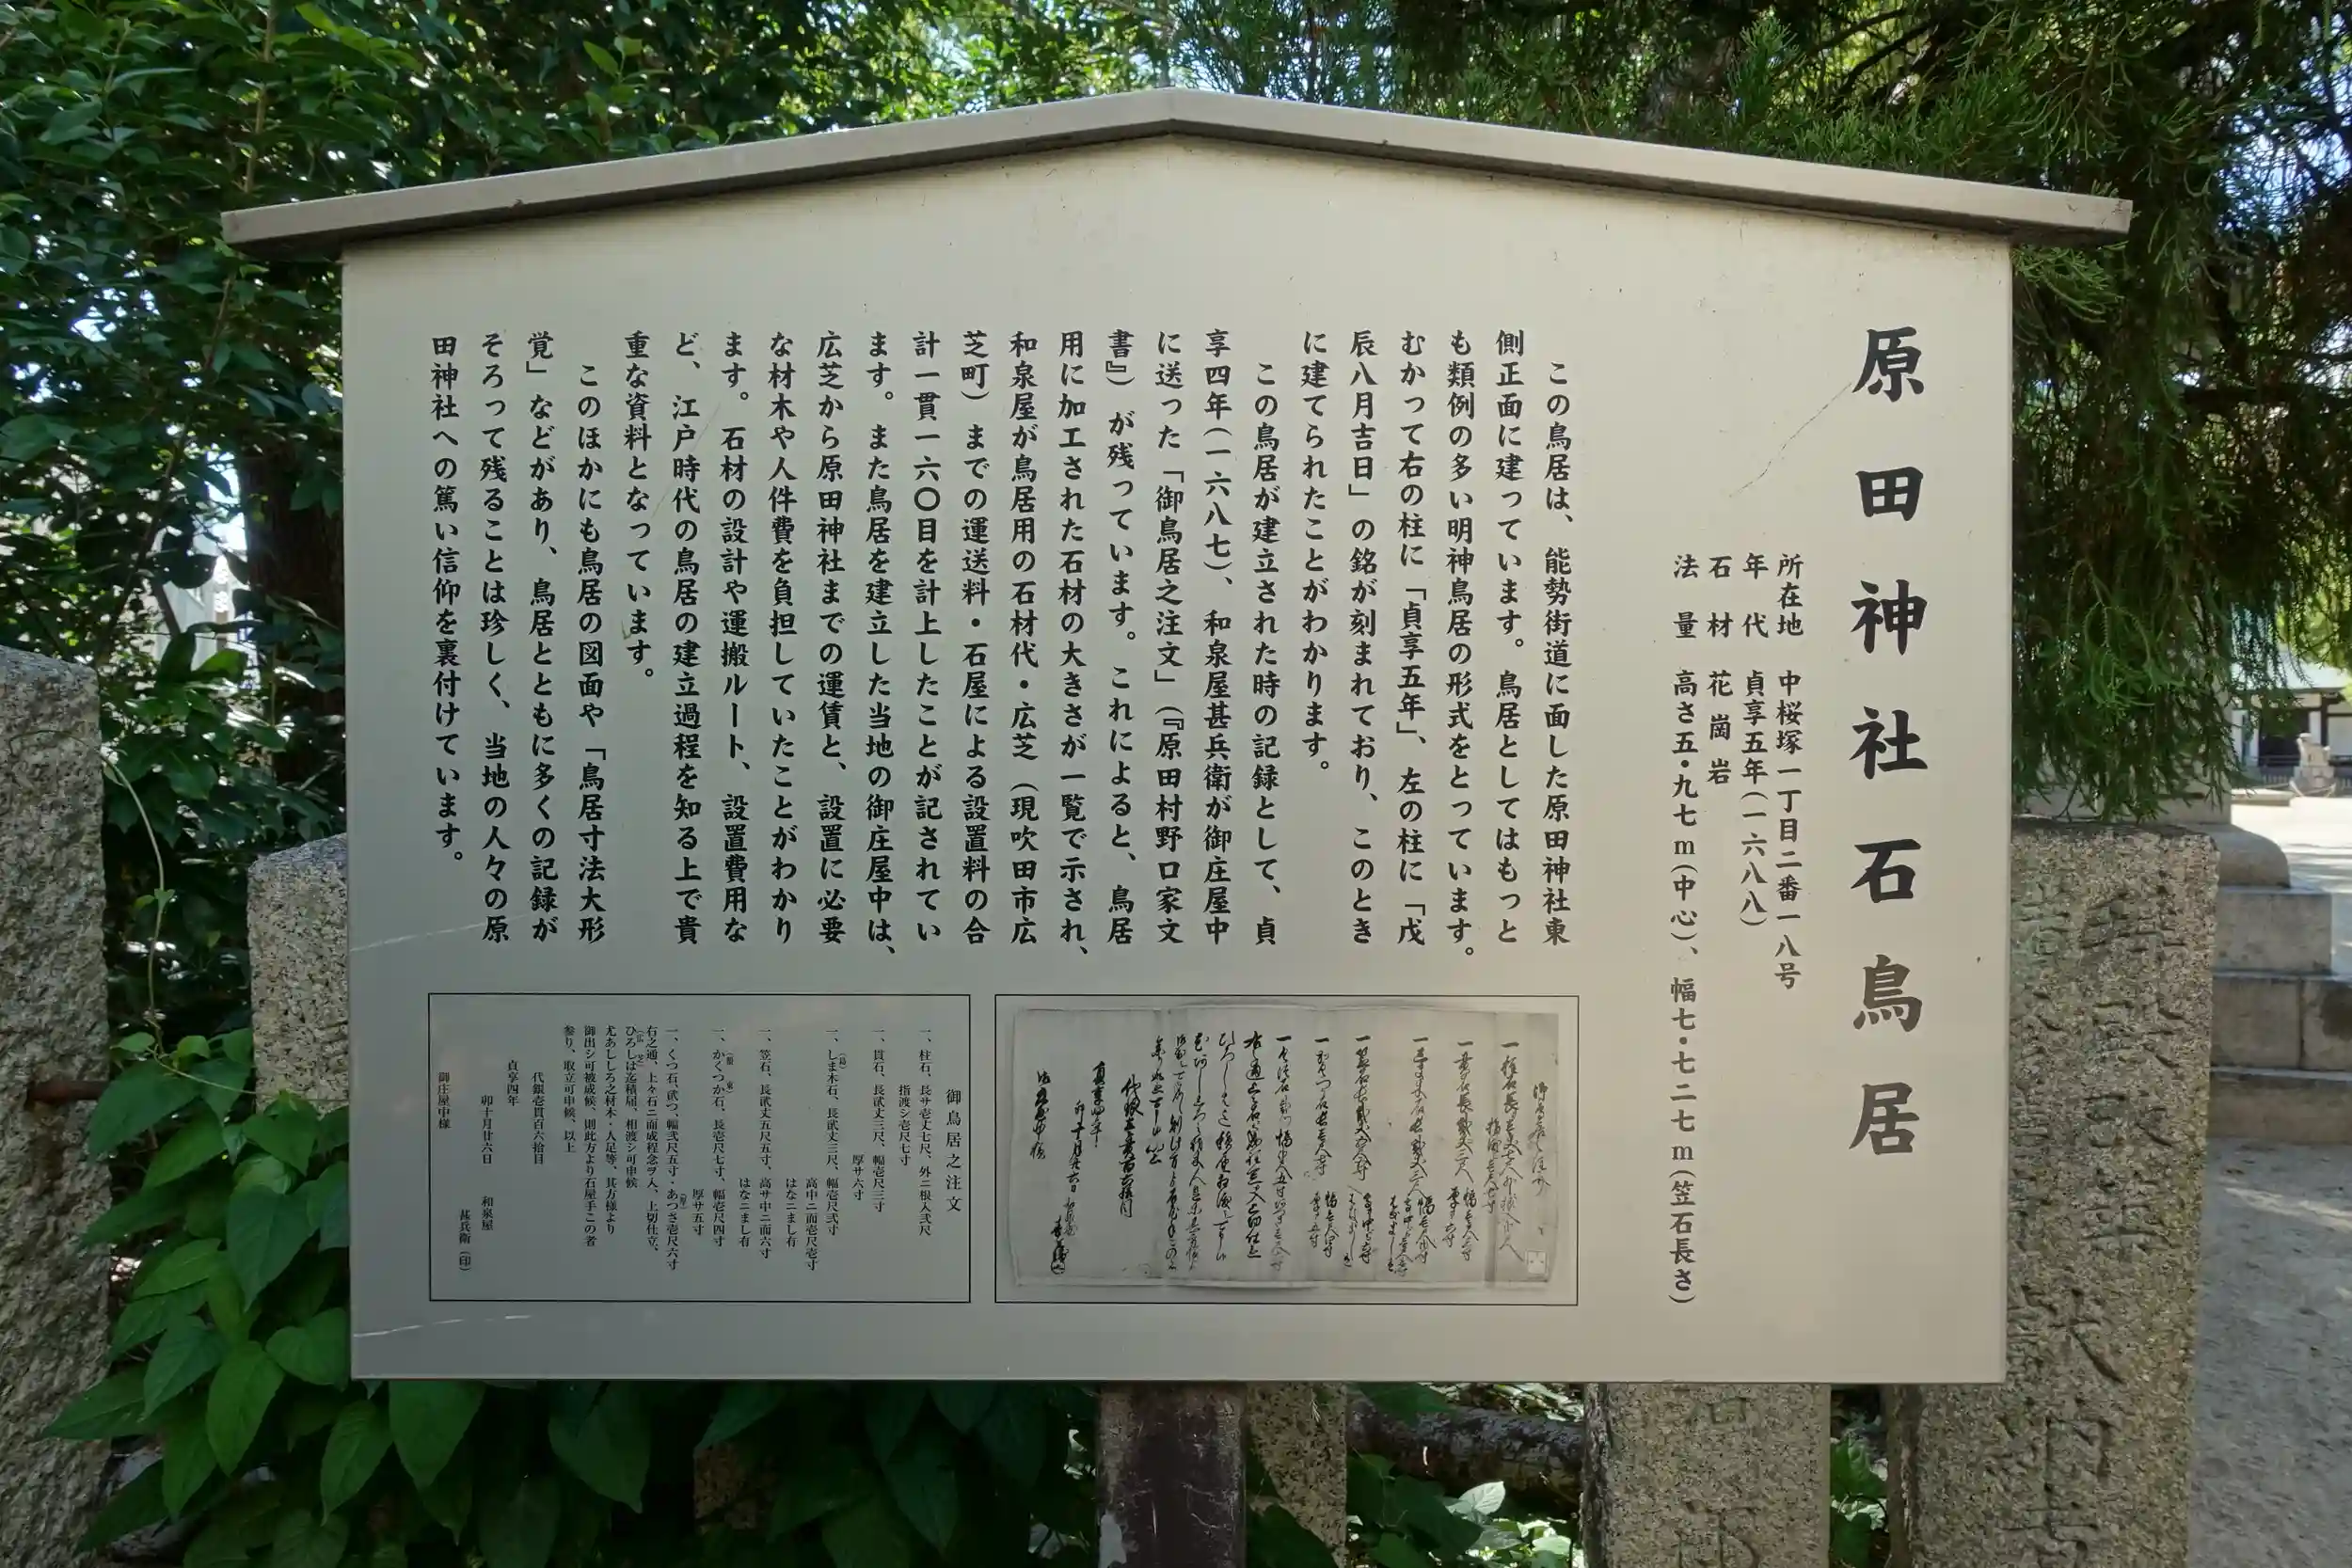 原田神社石鳥居
所在地 中桜塚一丁目二番一八号
年代 貞享五年(一六八八)
石材 花崗岩
法量 高さ五・九七m(中心)、幅七・七二七m(笠石長さ)
この鳥居は、能勢街道に面した原田神社東
側正面に建っています。鳥居としてはもっと
も類例の多い明神鳥居の形式をとっています。
むかって右の柱に「貞享五年」、左の柱に「戊
辰八月吉日」の銘が刻まれており、このとき
に建てられたことがわかります。
この鳥居が建立された時の記録として、貞
享四年(一六八七)、和泉屋甚兵衛が御庄屋中
に送った「御鳥居之注文」(『原田村野口家文
書』)が残っています。これによると、鳥居
用に加工された石材の大きさが一覧で示され、
和泉屋が鳥居用の石材代・広芝(現吹田市広
芝町)までの運送料・石屋による設置料の合
計一貫一六〇目を計上したことが記されてい
ます。また鳥居を建立した当地の御庄屋中は、
広芝から原田神社までの運賃と、設置に必要
な材木や人件費を負担していたことがわかり
ます。石材の設計や運搬ルート、設置費用な
ど、江戸時代の鳥居の建立過程を知る上で貴
重な資料となっています。
このほかにも鳥居の図面や「鳥居寸法大形
覚」などがあり、鳥居とともに多くの記録が
そろって残ることは珍しく、当地の人々の原
田神社への篤い信仰を裏付けています。
御鳥居之注文
一、柱石、長サ壱丈七尺、外ニ根入弐尺
指渡シ壱尺七寸
一、貫石、長弐丈三尺、幅壱尺三寸
厚サ六寸
一、しま木石、長弐丈三尺、幅壱尺弐寸
高中ニ而壱尺壱寸
はなニまし有
一、笠石、長弐丈五尺五寸、高サ中ニ而六寸
はなニまし有
一、かくつか石、長壱尺七寸、幅壱尺四寸
厚サ五寸
一、くつ石、弐つ、幅弐尺五寸・あつさ壱尺六寸
右之通、上々石ニ而成程念ヲ入、上切仕立、
ひろしは迄積届、相渡シ可申候
尤あししろ之材木・人足等、其方様より
御出シ可被成候、則此方より石屋手この者
参り、取立可申候、以上
代銀壱貫百六拾目
貞享四年
卯十月廿六日 和泉屋
甚兵衛(印)
御庄屋中様